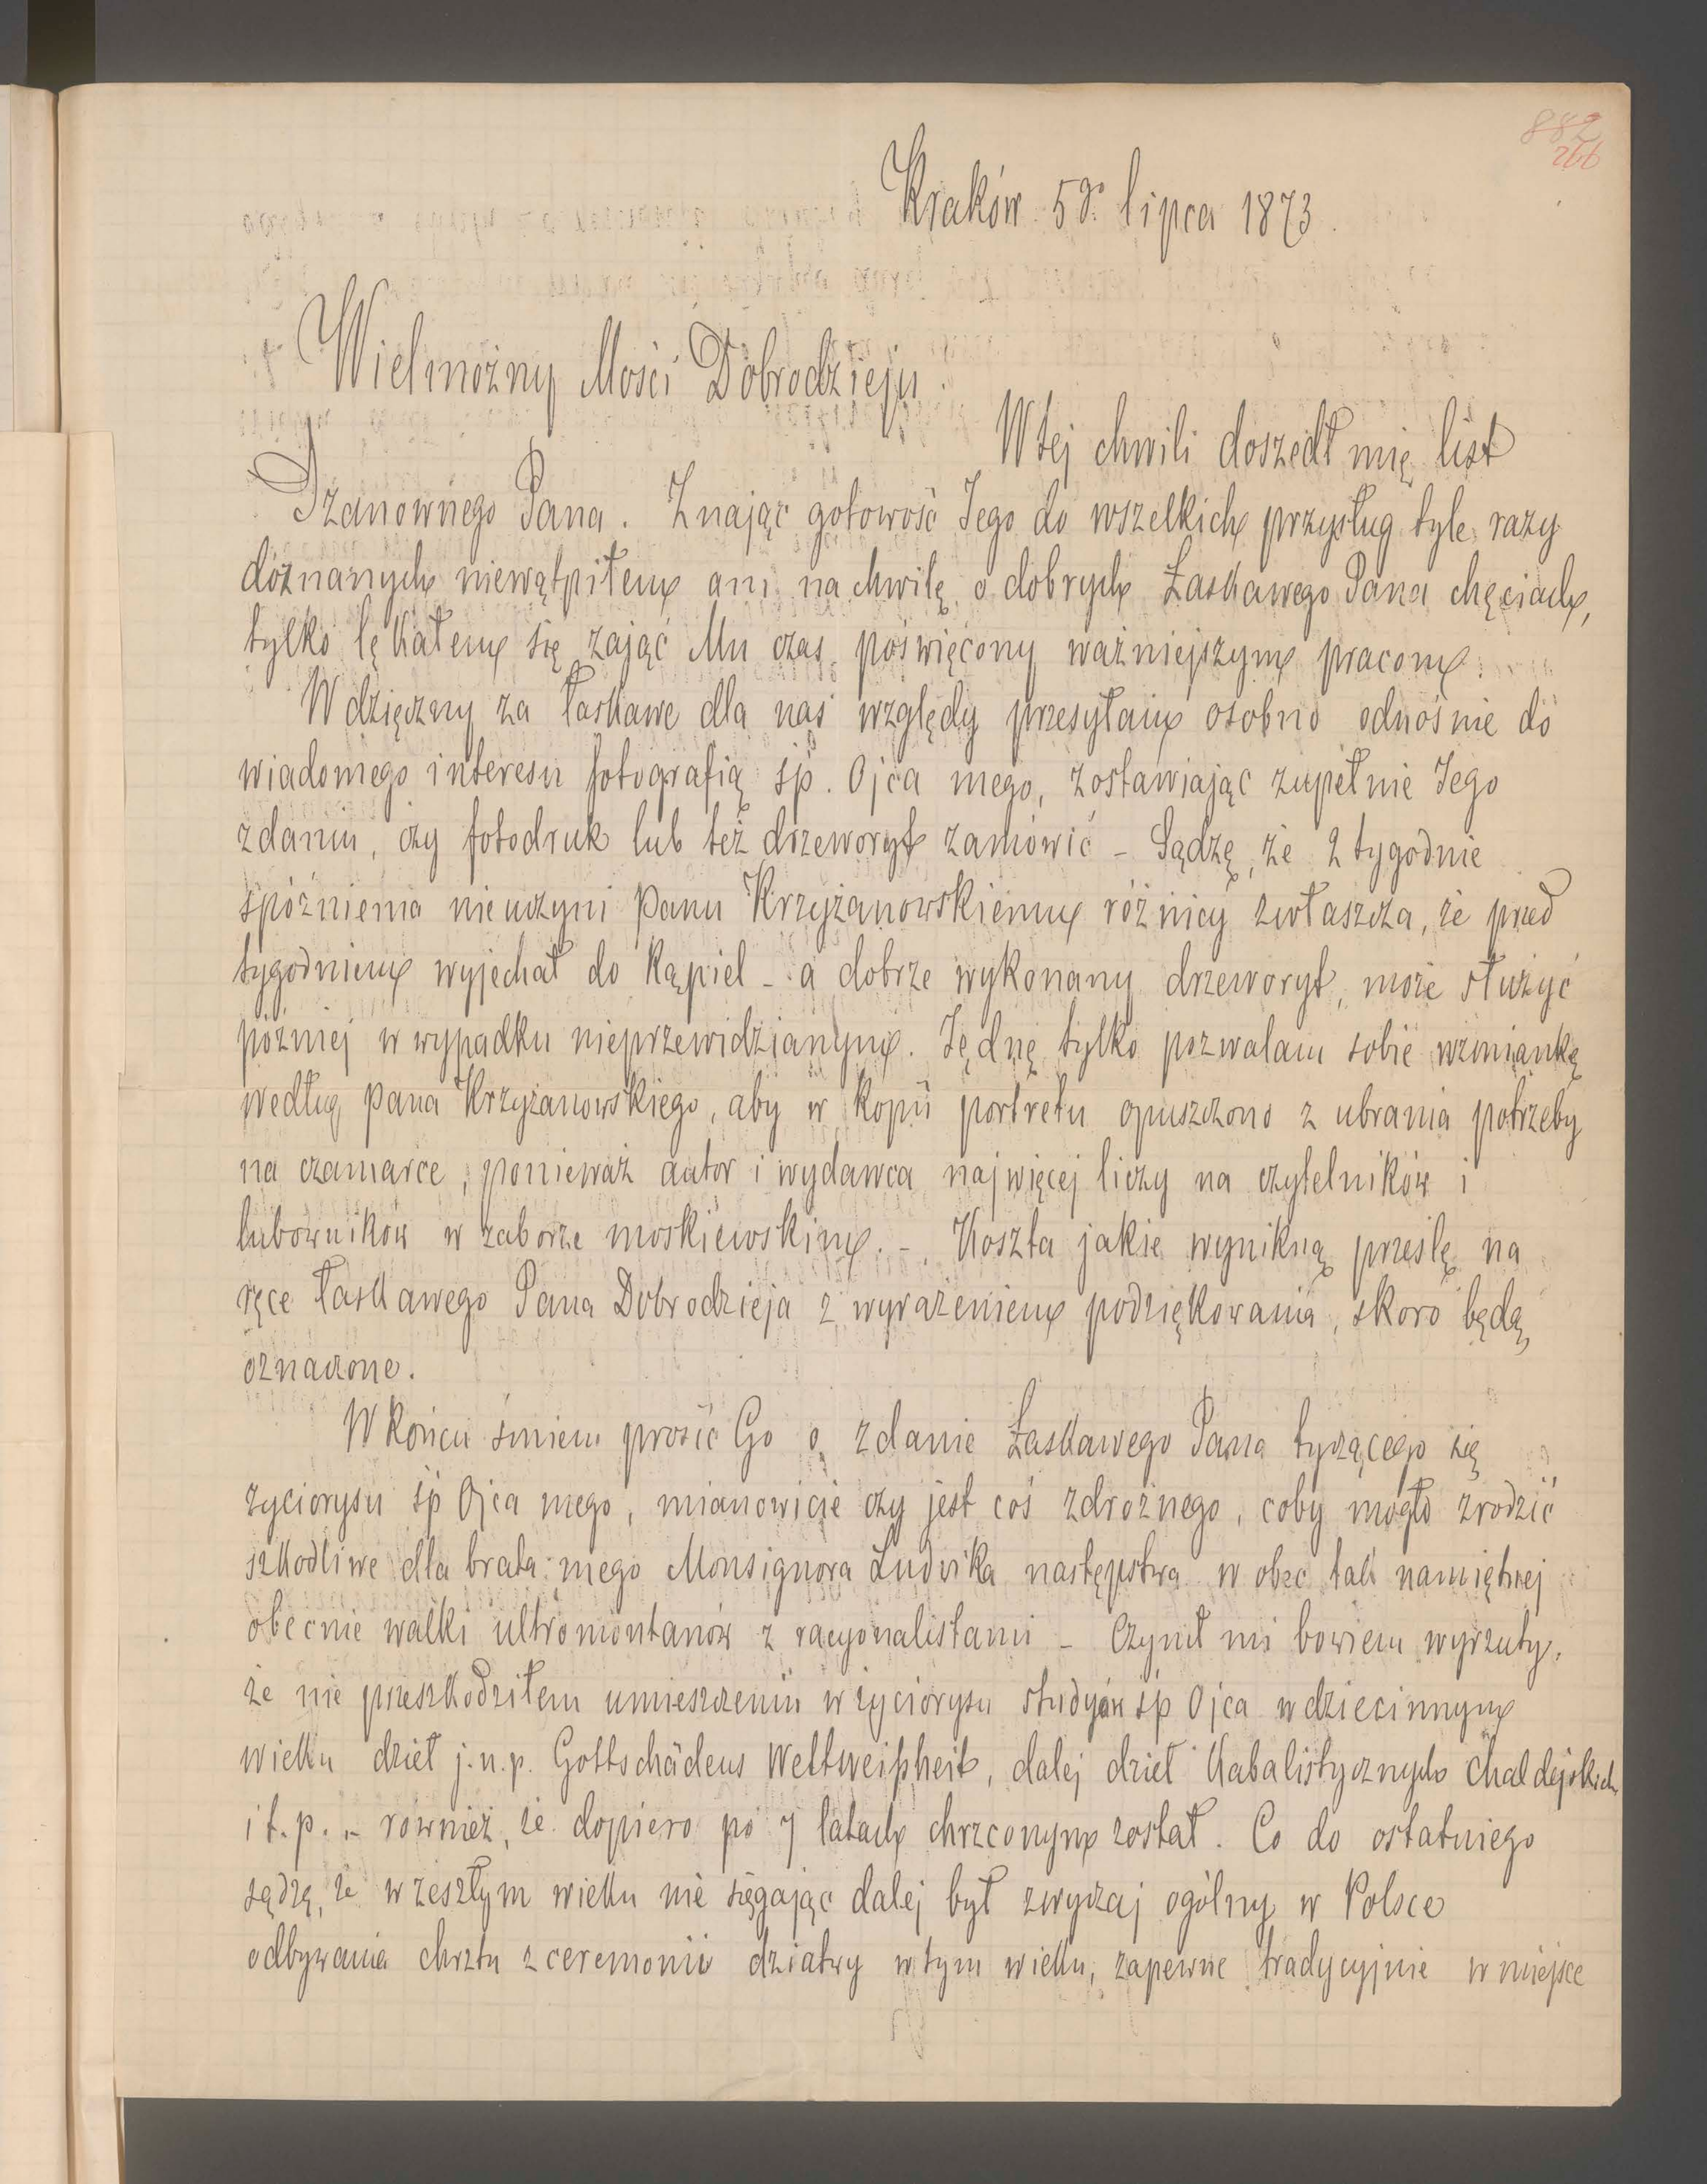 882
266
Kraków 5go lipca 1873.
Wielmożny Mości Dobrodzieju.
W tej chwili doszedł mię list
Szanownego Pana. Znając gotowość Jego do wszelkich przysług tyle razy
doznanych niewątpiłem ani na chwilę o dobrych Łaskawego Pana chęciach,
tylko lękałem się zająć Mu czas poświęcony ważniejszym pracom.
Wdzięczny za łaskawe dla nas względy przesyłam osobno odnośnie do
wiadomego interesu fotografią śp. Ojca mego, zostawiając zupełnie Jego
zdaniu, czy fotodruk lub też drzeworyt zamówić – Sądzę, że 2 tygodnie
spóźnienia nieuczyni Panu Krzyżanowskiemu różnicy zwłaszcza, że przed
tygodniem wyjechał do kąpiel – a dobrze wykonany drzeworyt, może służyć
później w wypadku nieprzewidzianym. Jędnę tylko pozwalam sobie wzmiankę
według Pana Krzyżanowskiego, aby w kopii portretu opuszczono z ubrania potrzeby
na czamarce, ponieważ autor i wydawca najwięcej liczy na czytelników i
lubowników w zaborze moskiewskim. – Koszta jakie wynikną prześlę na
ręce łaskawego Pana Dobrodzieja z wyrażeniem podziękowania, skoro będą
oznaczone.
W końcu śmiem prosić Go o zdanie Łaskawego Pana tyczącego się
życiorysu śp Ojca mego, mianowicie czy jest coś zdrożnego, coby mogło zrodzić
szkodliwe dla brata mego Monsignora Ludvika następstwa w obec tak namiętnej
obecnie walki ultromontanów z racyonalistami – Czynił mi bowiem wyrzuty,
że nie przeszkodziłem umieszczeniu w życiorysu studyów śp Ojca w dziecinnym
wieku dzieł j.n.p. Gottschädens Weltweißheit, dalej dzieł kabalistycznych chaldejskich
i t.p. – również, że dopiero po 7 latach chrzconym został. Co do ostatniego
sądzę, że w zeszłym wieku nie sięgając dalej był zwyczaj ogólny w Polsce
odbywania chrztu z ceremonii dziatwy w tym wieku, zapewne tradycyjnie w miejsce